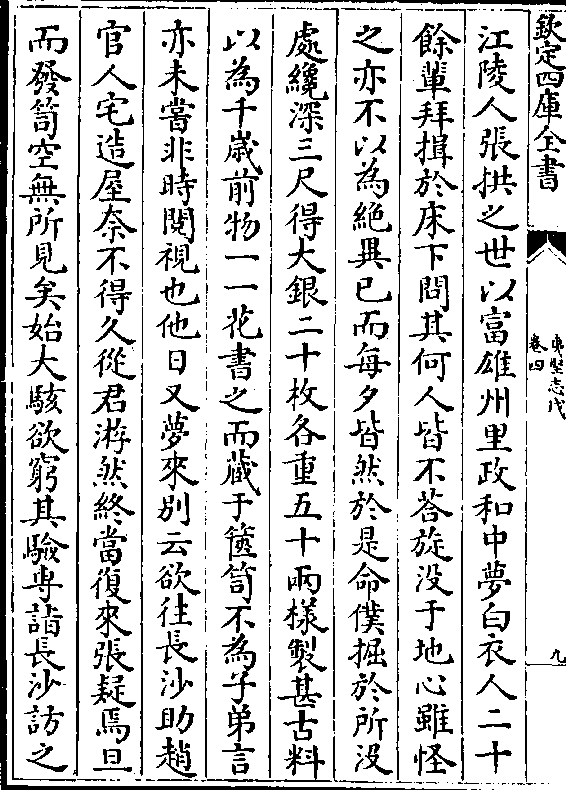 欽定四庫全書
夷堅志戊
卷四
九
江陵人張拱之世以富雄州里政和中夢白衣人二十
餘輩拜揖於床下問其何人皆不荅旋没于地心雖怪
之亦不以為絶異已而每夕皆然於是命僕掘於所没
處纔深三尺得大銀二十枚各重五十兩樣製甚古料
以為千歳前物一一花書之而藏于篋笥不為子弟言
亦未嘗非時閱視也他日又夢來别云欲往長沙助趙
官人宅造屋奈不得久從君游然終當復來張疑焉旦
而發笥空無所見矣始大駭欲窮其驗専詣長沙訪之